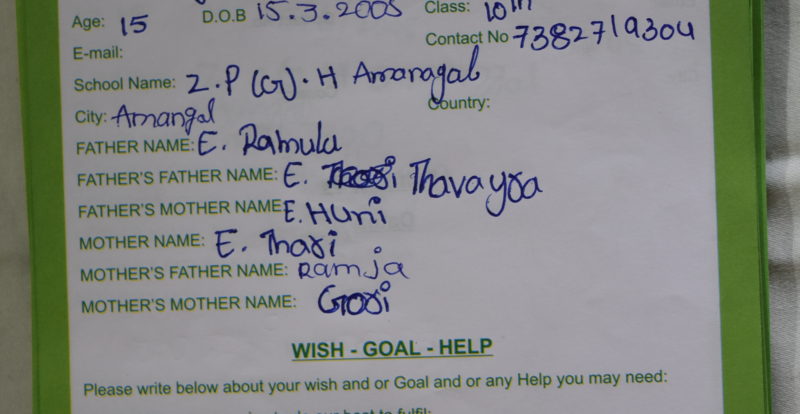 Age: 15 D.O.B 15.3.2005 Class: 10th
E-mail: Contact No 7382719304
School Name: Z.P (G).H Amanagal
City: Amangal Country:
FATHER NAME: E. Ramulu
FATHER'S FATHER NAME: E. Thavayra
FATHER'S MOTHER NAME E. Huni
MOTHER NAME: E. Thari
MOTHER'S FATHER NAME: Ramja
MOTHER'S MOTHER NAME: Gori
WISH - GOAL - HELP
Please write below about your wish and or Goal and or any Help you may need: